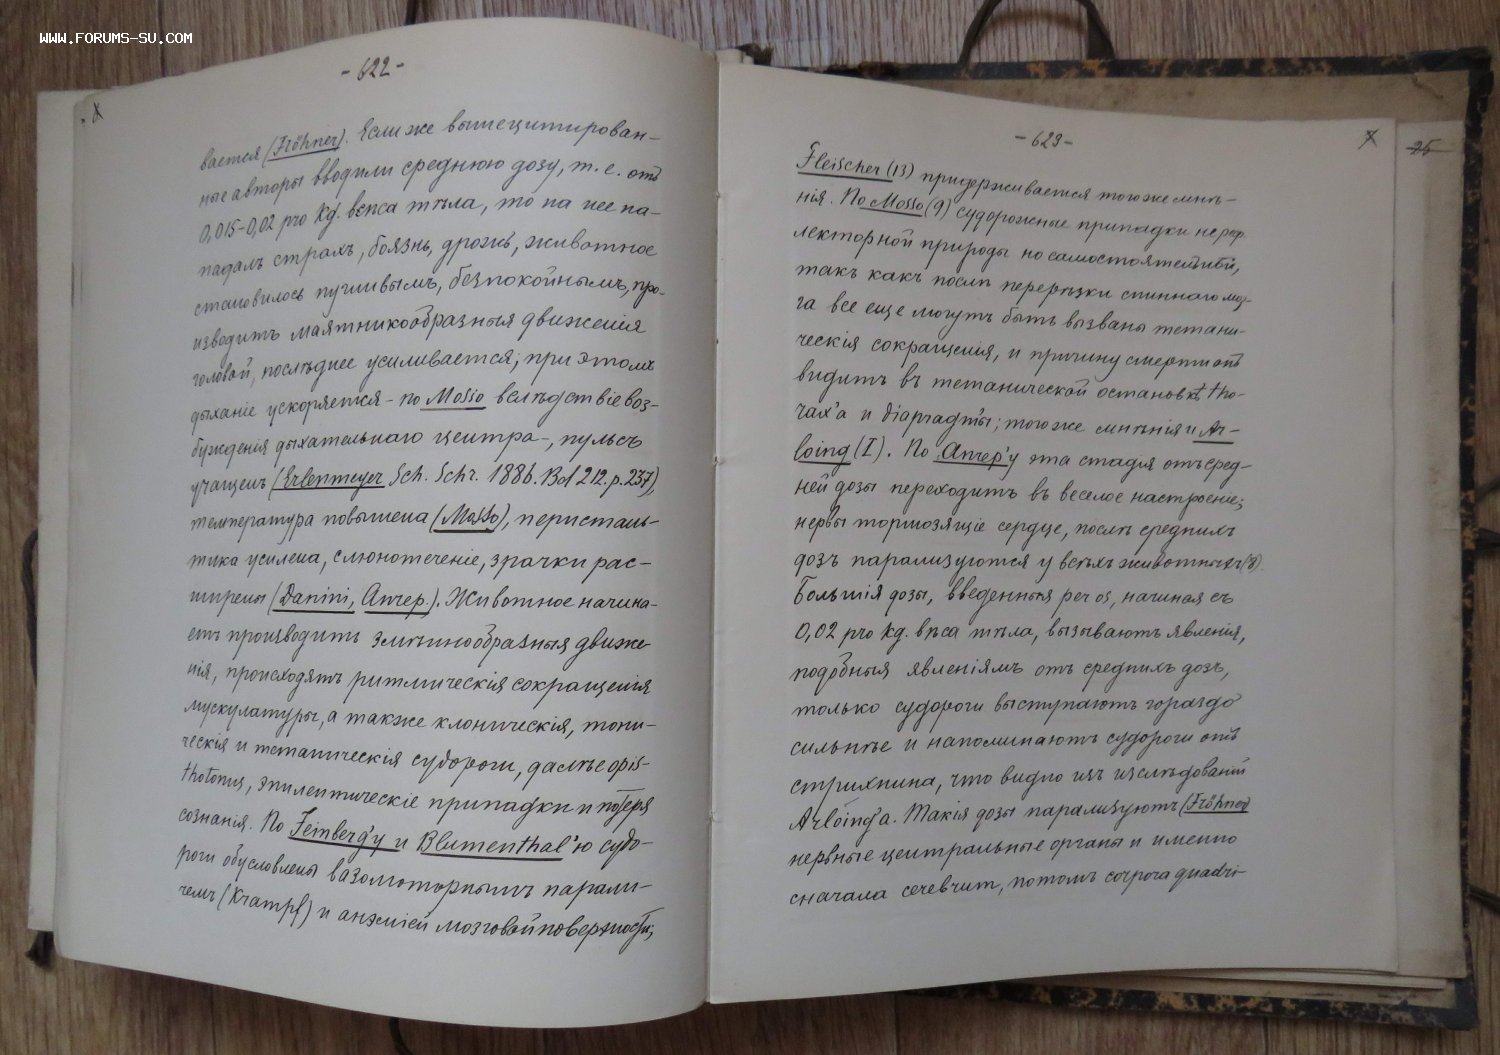 WWW.FORUMS-SU.COM
-622-
вается (Fröhner). Если же вышецитирован-
ные авторы вводили среднюю дозу, т. е. отъ
0,015-0,02 pro kg. вѣса тѣла, то на нее на-
падалъ страхъ, боязнь, дрожь, животное
становилось пугливымъ, безпокойнымъ, про-
изводитъ маятникообразныя движенія
головой, послѣднее усиливается; при этомъ
дыханіе ускоряется - по Mosso вслѣдствіе воз-
бужденія дыхательнаго центра-, пульсъ
учащенъ (Erlenmeyer Sch. Schr. 1886. Bd 212. p. 237),
температура повышена (Mosso), перисталь-
тика усилена, слюнотеченіе, зрачки рас-
ширены (Danini, Anrep.). Животное начина-
етъ производить змѣинообразныя движе-
нія, происходятъ ритмическія сокращенія
мускулатуры, а также клоническія, тони-
ческія и тетаническія судороги, далѣе opis-
thotonus, эпилептическіе припадки и потеря
сознанія. По Feinberg'у и Blumenthal'ю судо-
роги обусловлены вазомоторнымъ парали-
чемъ (Krampf) и анэміей мозговой поверхности;
-623-
25
Fleischer (13) придерживается того же мнѣ-
нія. По Mosso (9) судорожные припадки не реф
лекторной природы но самостоятельны,
такъ какъ послѣ перерѣзки спинного моз-
га все еще могутъ быть вызваны тетани-
ческія сокращенія, и причину смерти онъ
видитъ въ тетанической остановкѣ tho-
rax'a и diaphragm'ы; того же мнѣнія и Ar-
loing (I). По Anrep'у эта стадія отъ сред-
ней дозы переходитъ въ веселое настроеніе;
нервы тормозящіе сердце, послѣ среднихъ
дозъ парализуются у всѣхъ животныхъ (8).
Большія дозы, введенныя per os, начиная съ
0,02 pro kg. вѣса тѣла, вызываютъ явленія,
подобныя явленіямъ отъ среднихъ дозъ,
только судороги выступаютъ гораздо
сильнѣе и напоминаютъ судороги отъ
стрихнина, что видно изъ изслѣдованій
Arloing'a. Такія дозы парализуютъ (Fröhner)
нервные центральные органы и именно
сначала cerebrum, потомъ corpora quadri-